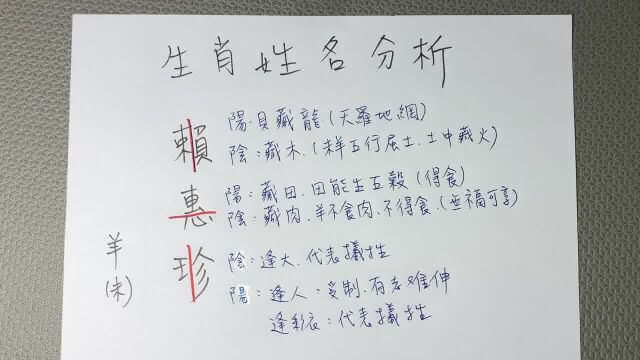 生肖姓名分析
賴
陽:貝藏龍(天羅地網)
陰:藏木.(未羊五行屬土.土中藏火)
惠
陽:藏田.田能生五穀(得食)
陰:藏肉.羊不食肉.不得食.(無福可享)
珍
陰:逢大.代表犧牲
陽:逢人:受制.有志難伸
逢彩衣:代表犧牲
羊
(未)